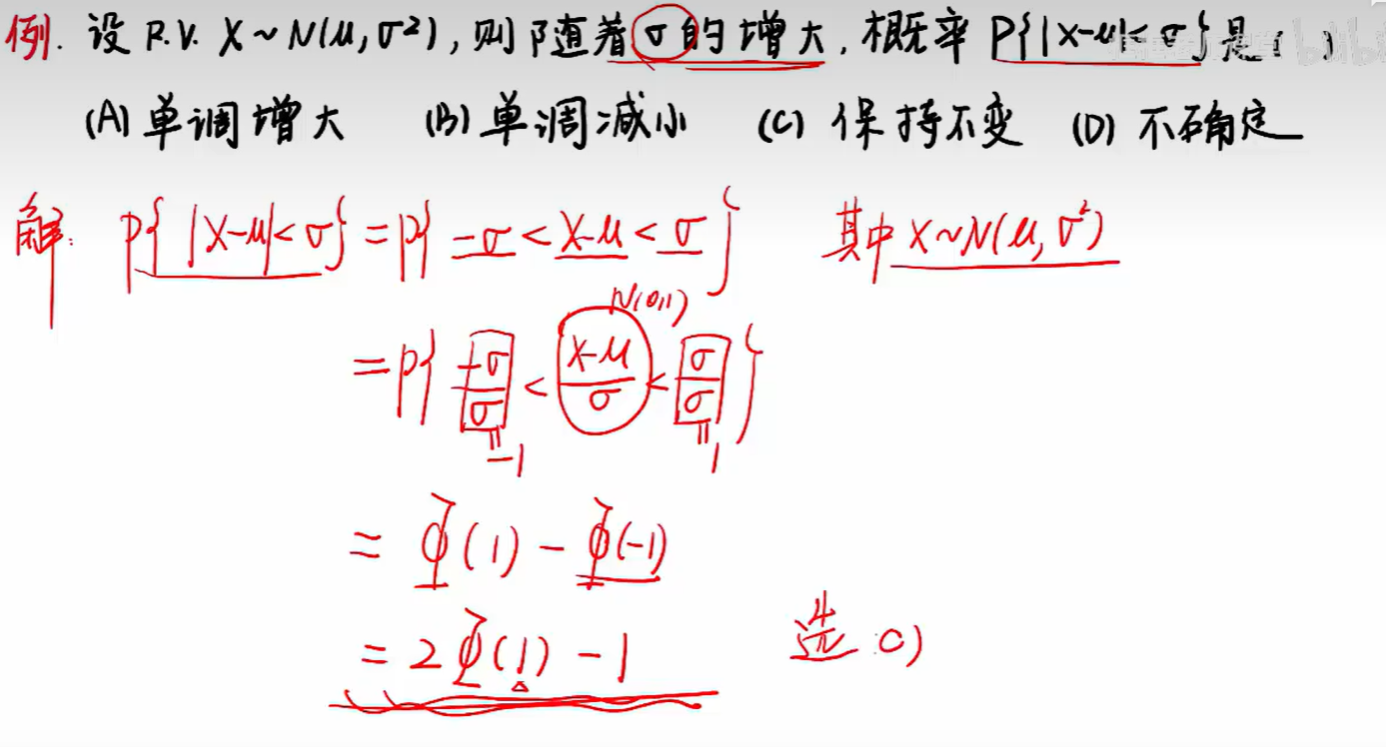 例. 设 R.V. X~N(μ, σ²), 则随着σ的增大, 概率 P{|X-μ|<σ}是( )
(A) 单调增大 (B) 单调减小 (C) 保持不变 (D) 不确定
解: P{|X-μ|<σ} = P{-σ < X-μ < σ} 其中 X~N(μ, σ²)
N(0,1)
= P{-σ/σ < (X-μ)/σ < σ/σ}
= -1 = 1
= Φ(1) - Φ(-1)
= 2Φ(1) - 1 选 C)